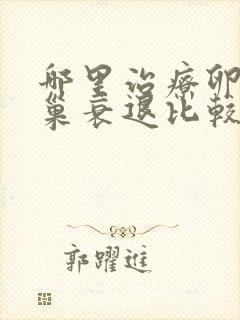 哪里治療卵
巢衰退比較
郭躍進